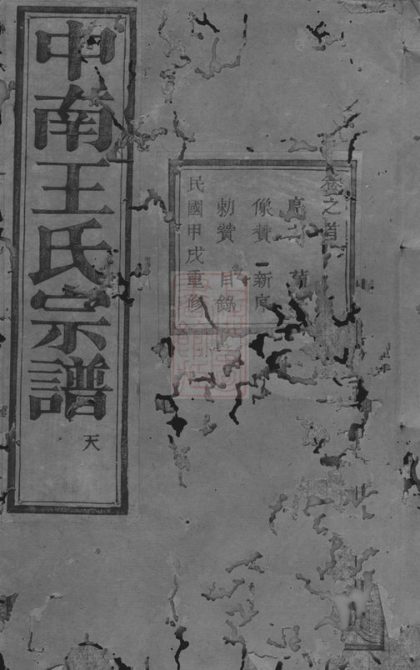 中南王氏宗譜
天
卷之首
像贊 新序
勅贊 目錄
民國甲戌重修